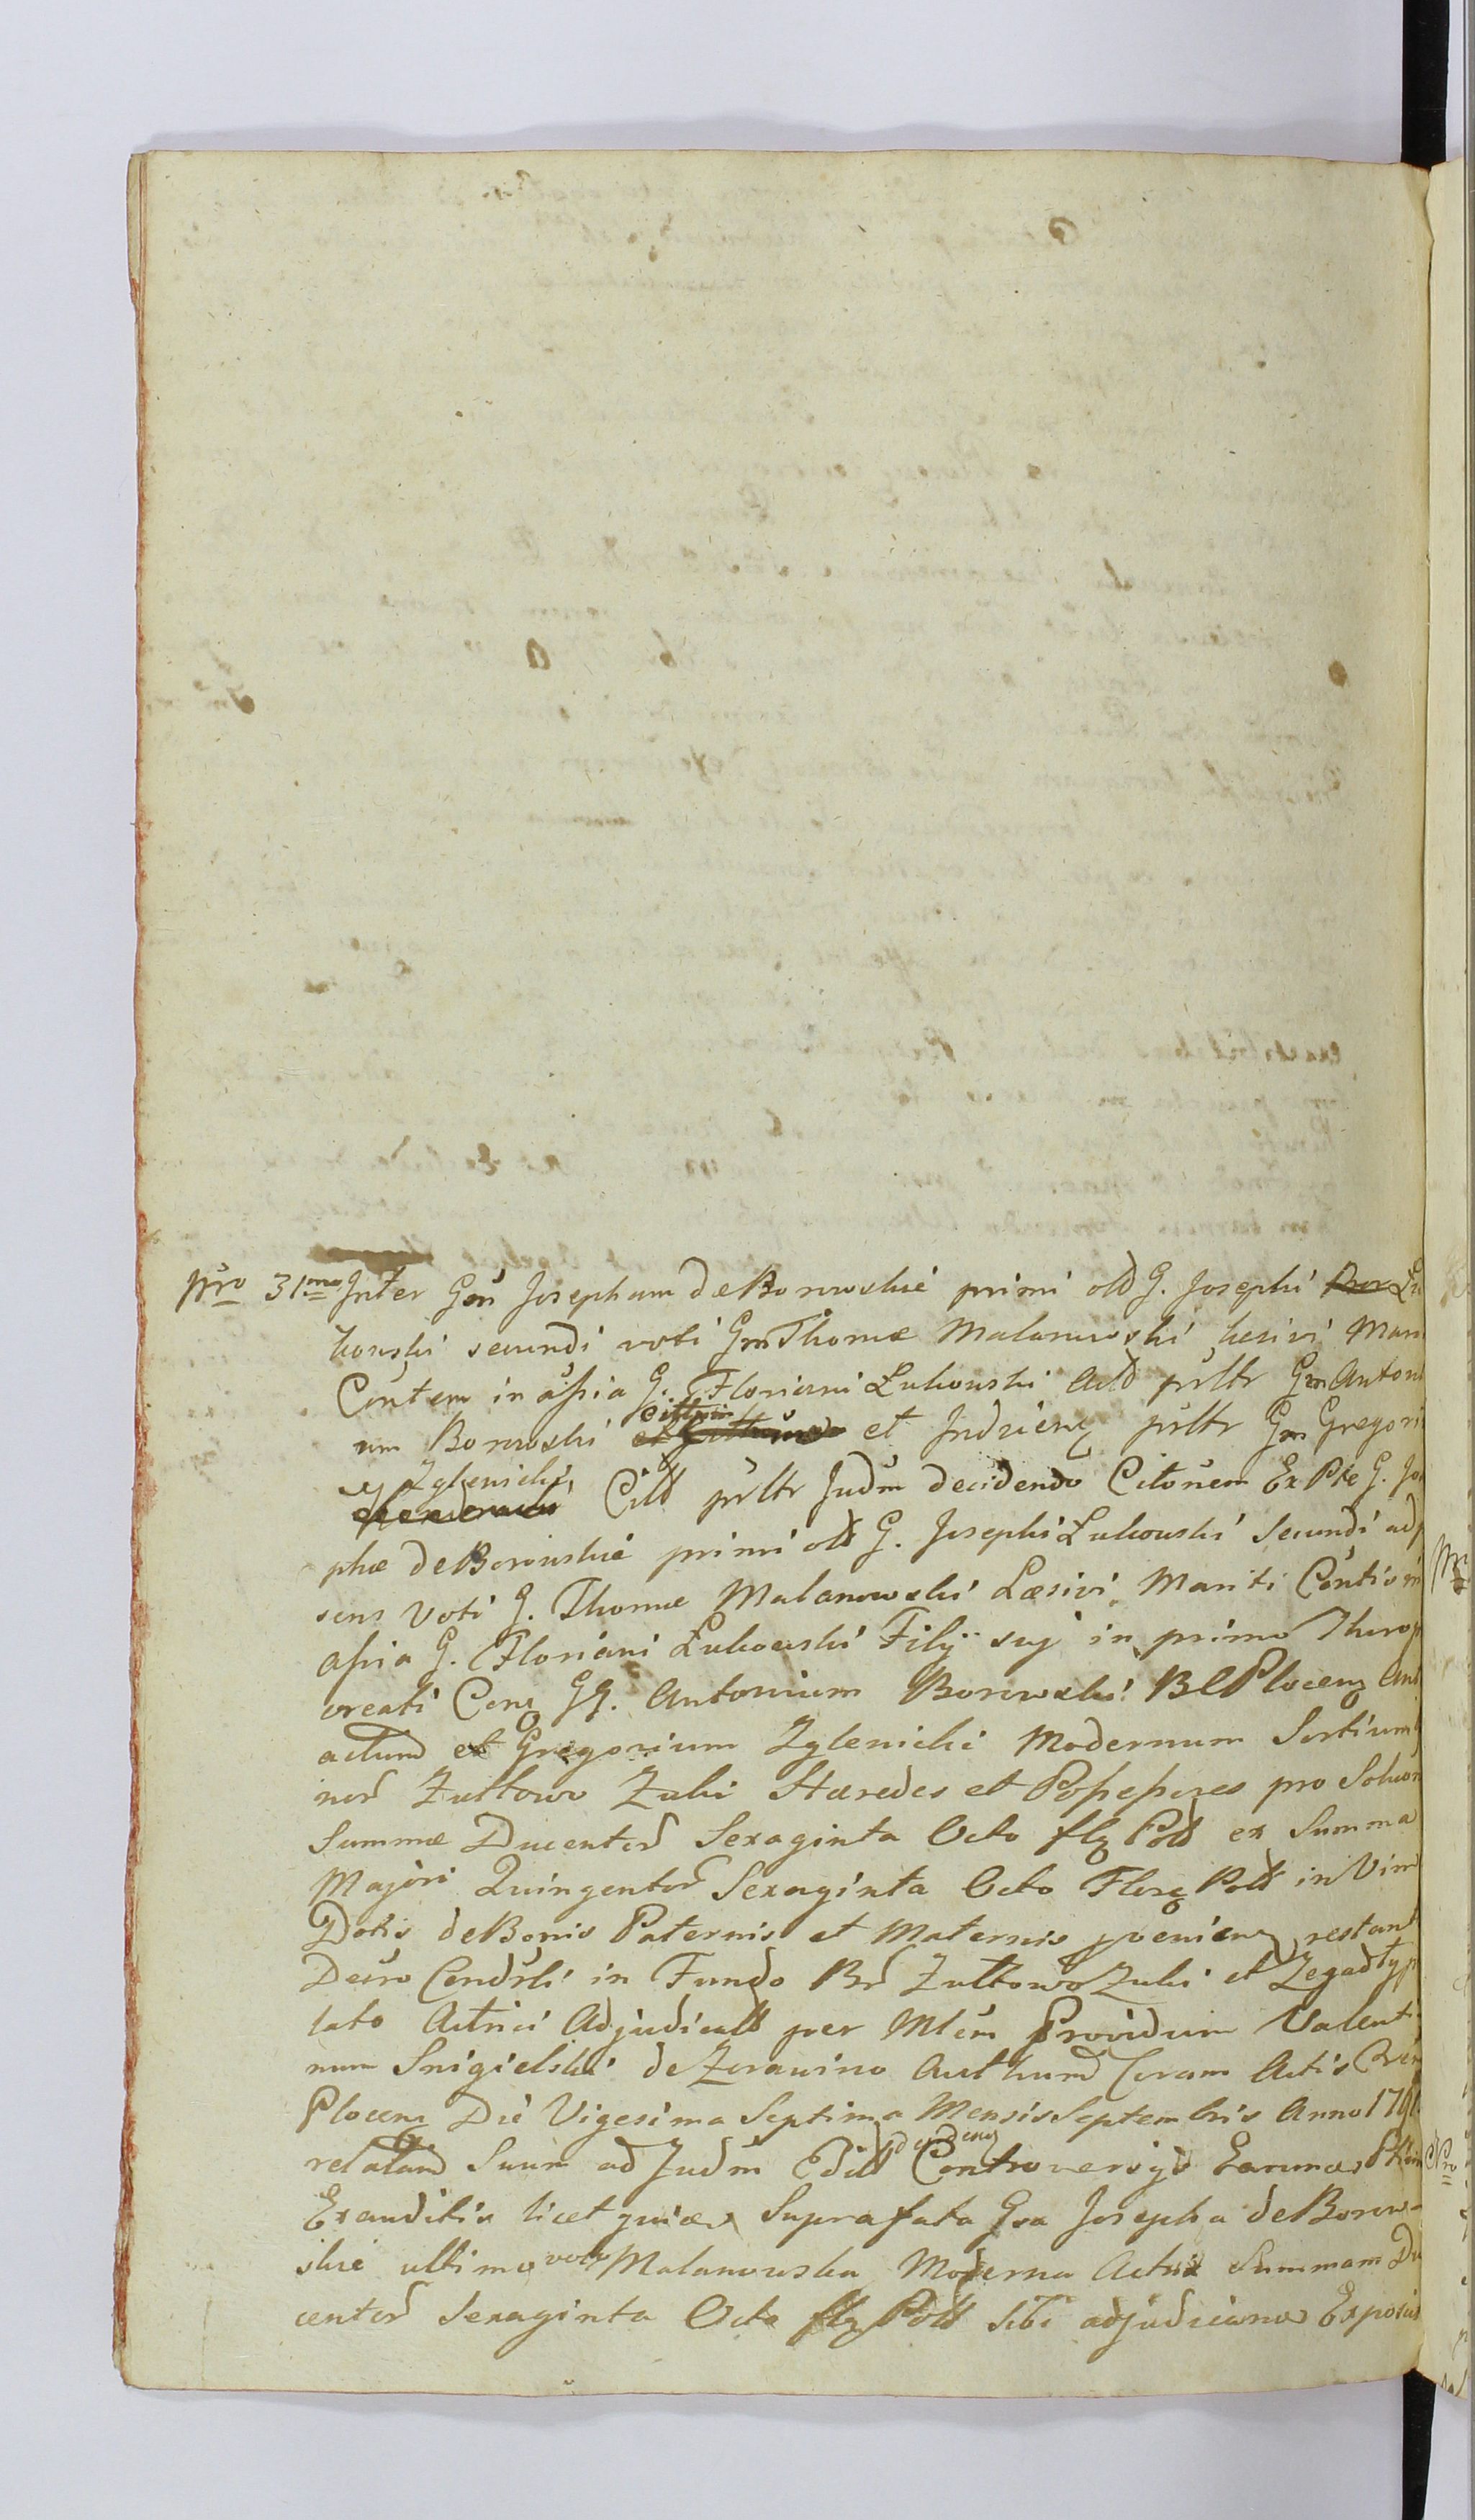 pro 31mo Inter Gm Josepham de Borowskie primi old G. Josephi Lu
kowski secundi voti Gm Thomæ Malanowski hesivi Mari
Contem in assia G. Floriani Lukowski Actd prltr Gm Antoni
um Borowski cittum et Judicienz prltr Gm Gregori
Zglenicki Citt prltr Judm decidendo Citonem Ex Pte G. Jo
phæ de Borowskie primi old G. Josephi Lukowski Secundi ad p
sens Voti G. Thomæ Malanowski Læsivi Mariti Contis in
assia G. Floriani Lukowski Filij suj in primo Thoro p
creati Conz GG. Antonium Borowski BC Plocenz Ant
actum et Gregorium Zglenicki Modernum Sortium
nor Zultowo Zuki Hæredes et Possessores pro Soluon
Summæ Ducentor Sexaginta Octo flz Pold ex Summa
Majori Quingentor Sexaginta Octo Florz Pold in Vim
Dotis de Bonis Paternis et Maternis proenienz restant
Decro Condrli in Fundo Br Zultowo Zuki et
lato Actrici Adjudicatt per Mlem Providum Valenti
num Snigielski de Zorawino Authum Coram Actis
Plocenz Die Vigesima Septima Mensis Septembris Anno 179
relatam Suum ad Judm Edict dendenz Controversijs Earum
Exauditis licet quidem Suprafata Gsa Josepha de Borow-
skie ultimo voto Malanowska Moderna Actrix Summam Du
centor Sexaginta Octo flz Pold Sibi adjudicana Exposui